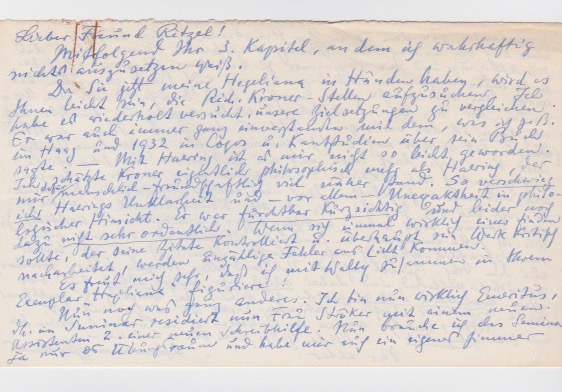 Lieber Freund Ritzel!
Mitfolgend Ihr 3. Kapitel, an dem ich wahrhaftig
nichts auszusetzen weiß.
Da Sie jetzt meine Hegeliana in Händen haben, wird es
Ihnen leicht sein, die Rich. Kroner-Stellen aufzusuchen. Ich
habe es wiederholt versucht, unsere Zielsetzungen zu vergleichen.
Er war auch immer ganz einverstanden mit dem, was ich z.B.
im Haag und 1932 in Logos u. Kantstudien über sein Buch
sagte. — Mit Haering ist es mir nicht so leicht geworden.
Ich schätzte Kroner eigentlich philosophisch mehr als Haering, der
mir menschlich-freundschaftlich viel näher stand. So verschwieg
ich Haerings Unklarheit und — vor allem — Unexaktheit in philo-
logischer Hinsicht. Er war furchtbar kurzsichtig und leider auch
dazu nicht sehr ordentlich. Wenn sich einmal wirklich einer finden
sollte, der seine Zitate kontrolliert u. überhaupt sein Werk kritisch
nacharbeitet, werden unzählige Fehler ans Licht kommen.
Es freut mich sehr, daß ich mit Wally zusammen in Ihrem
Exemplar "Hegeliana" figuriere!
Nun noch was ganz anderes. Ich bin nun wirklich Emeritus,
d.h. im Seminar residiert nun Frau Ströker mit einem neuen
Assistenten u. einer neuen Schreibhilfe. Nun brauche ich das Seminar
ja nur als Übungsraum und habe mir auch ein eigenes Zimmer